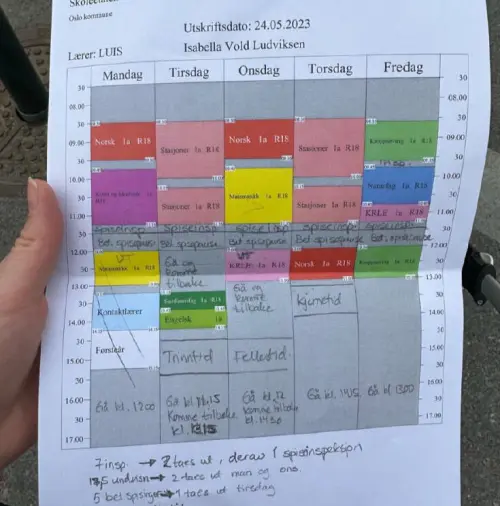 Oslo kommune
Utskriftsdato: 24.05.2023
Lærer: LUIS
Isabella Vold Ludviksen
Mandag Tirsdag Onsdag Torsdag Fredag
30 30
08.00 08.00
30 30
09.00 Norsk 1a R18 Stasjoner 1a R18 Norsk 1a R18 Stasjoner 1a R18 09.00
30 30
10.00 10.00
30 Matematikk 1a R18 Naturfag 1a R18 30
Stasjoner 1a R18 Stasjoner 1a R18 KRLE 1a R18
11.00 11.00
30 spiseinsp spiseinsp spiseinsp spiseinsp 30
Bet spisepause Bet spisepause Bet spisepause Bet spisepause
12.00 UT Gå og UT 12.00
30 Matematikk 1a R18 komme KRLE 1a R18 Norsk 1a R18 30
tilbake
13.00 13.00
30 Kontaktlærer Samfunnsfag 1a R18 Gå og kjernetid 30
Engelsk 1a komme
14.00 tilbake 14.00
30 Førskår 30
15.00 Trinntid Fellestid 15.00
30 30
16.00 Gå kl. 1200 Gå kl. Gå kl. 12 Gå kl. 1415 Gå kl 1300 16.00
30 Komme tilbake komme tilbake 30
kl. 1315 kl 1430
17.00 17.00
7 insp. → 2 taes ut, derav 1 spiseinspeksjon
undvisn → 2 taes ut man og ons.
5 bet spisepause → 1 taes ut tirsdag